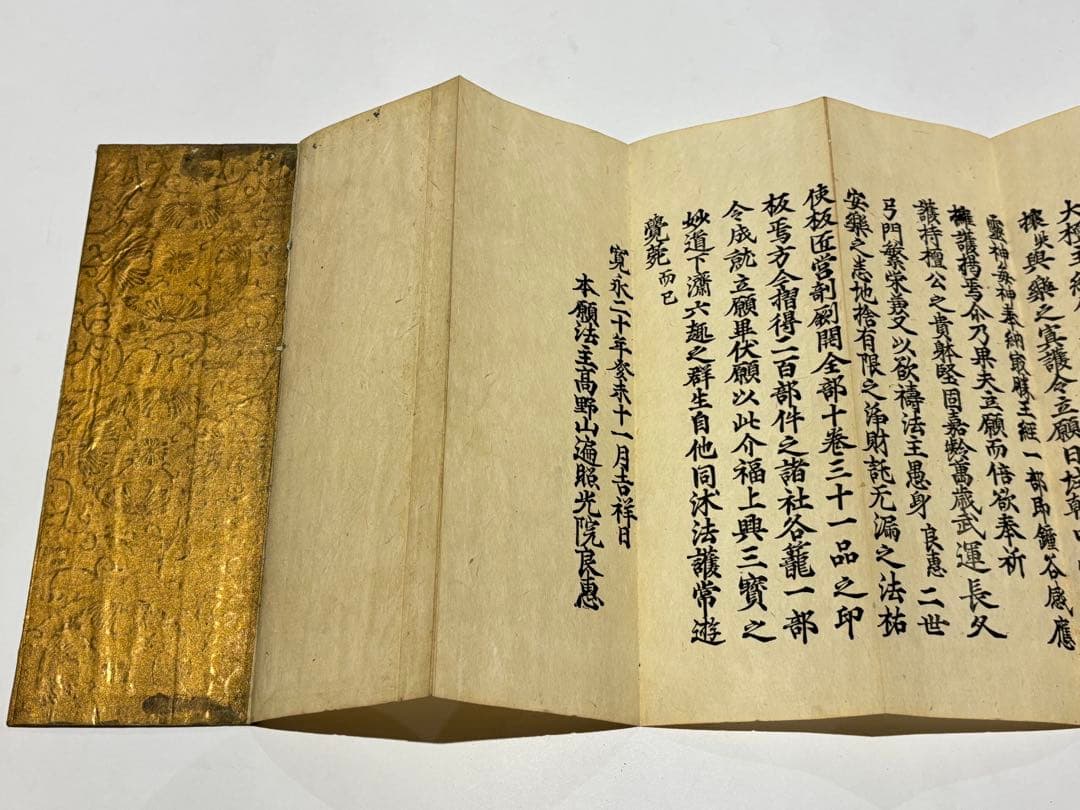 大檀主
與樂之冥護令立願日
靈神每神奉納最勝王經一部即鐘谷感應
擁護揭焉尒乃果夫立願而倍欲奉祈
護持檀公之貴躰堅固嘉齡萬歲武運長久
弓門繁栄兼又以欲禱法主愚身良惠二世
安樂之志地捨有限之淨財託无漏之法祐
使板匠営剞劂開全部十卷三十一品之印
板焉方今摺得二百部件之諸社各籠一部
令成就立願畢伏願以此介福上興三寶之
妙道下濟六趣之群生自他同沐法護常遊
覺苑而已
寛永二十年癸未十一月吉祥日
本願法主髙野山遍照光院良惠